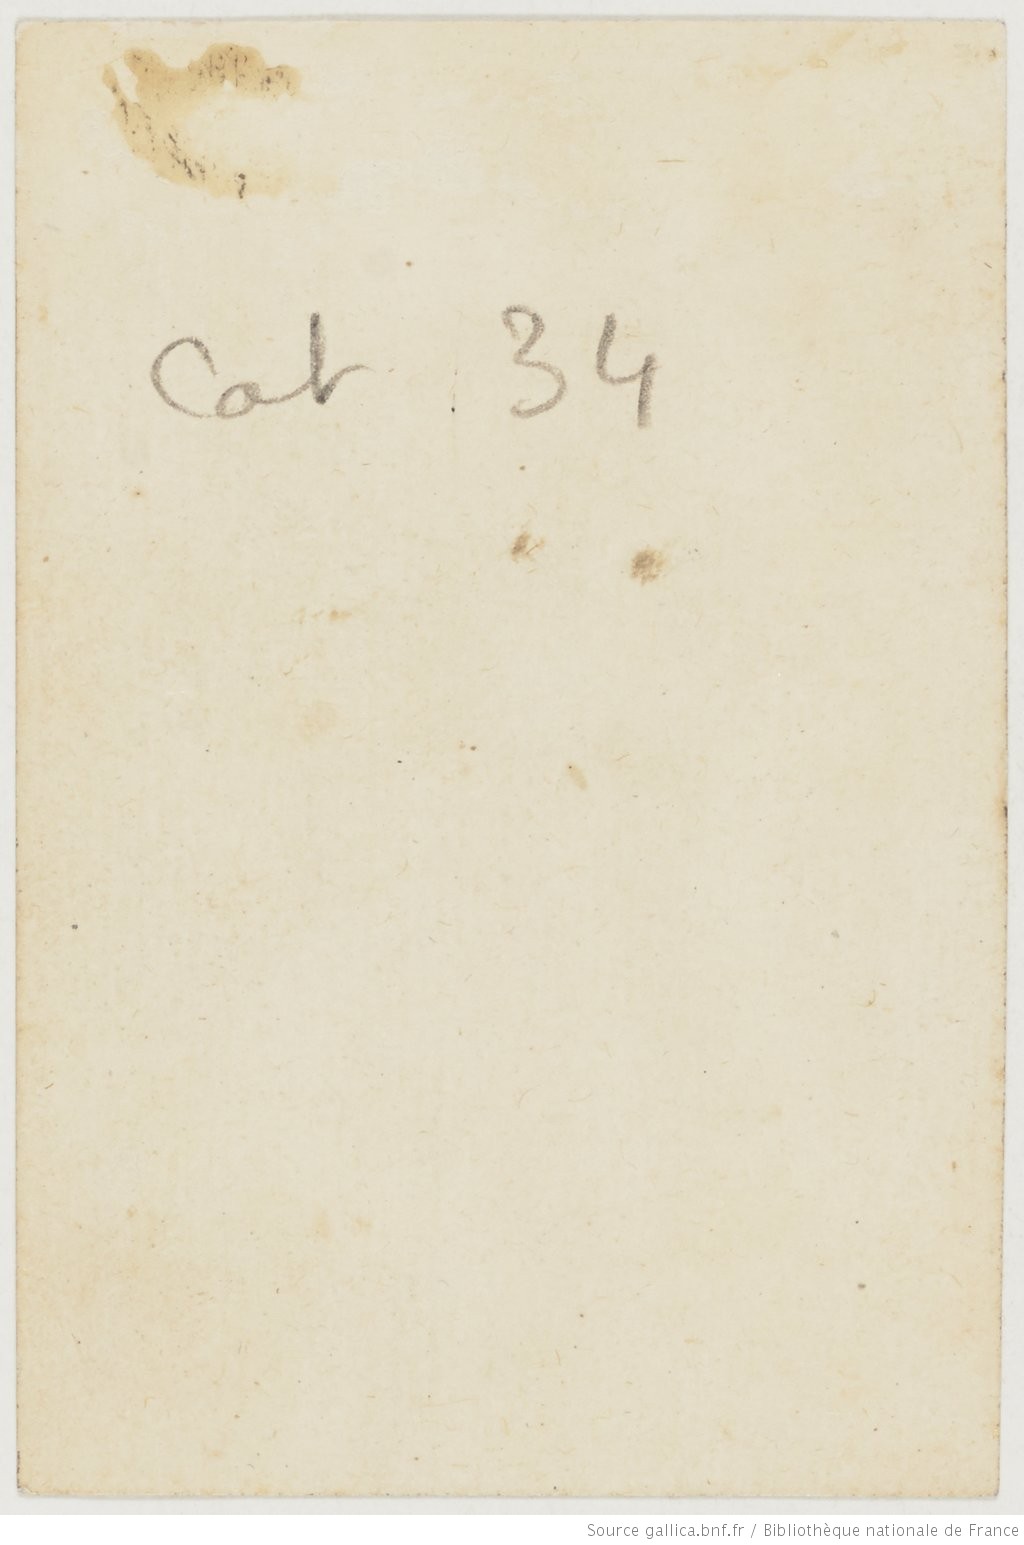 Cat 34
Source gallica.bnf.fr / Bibliothèque nationale de France